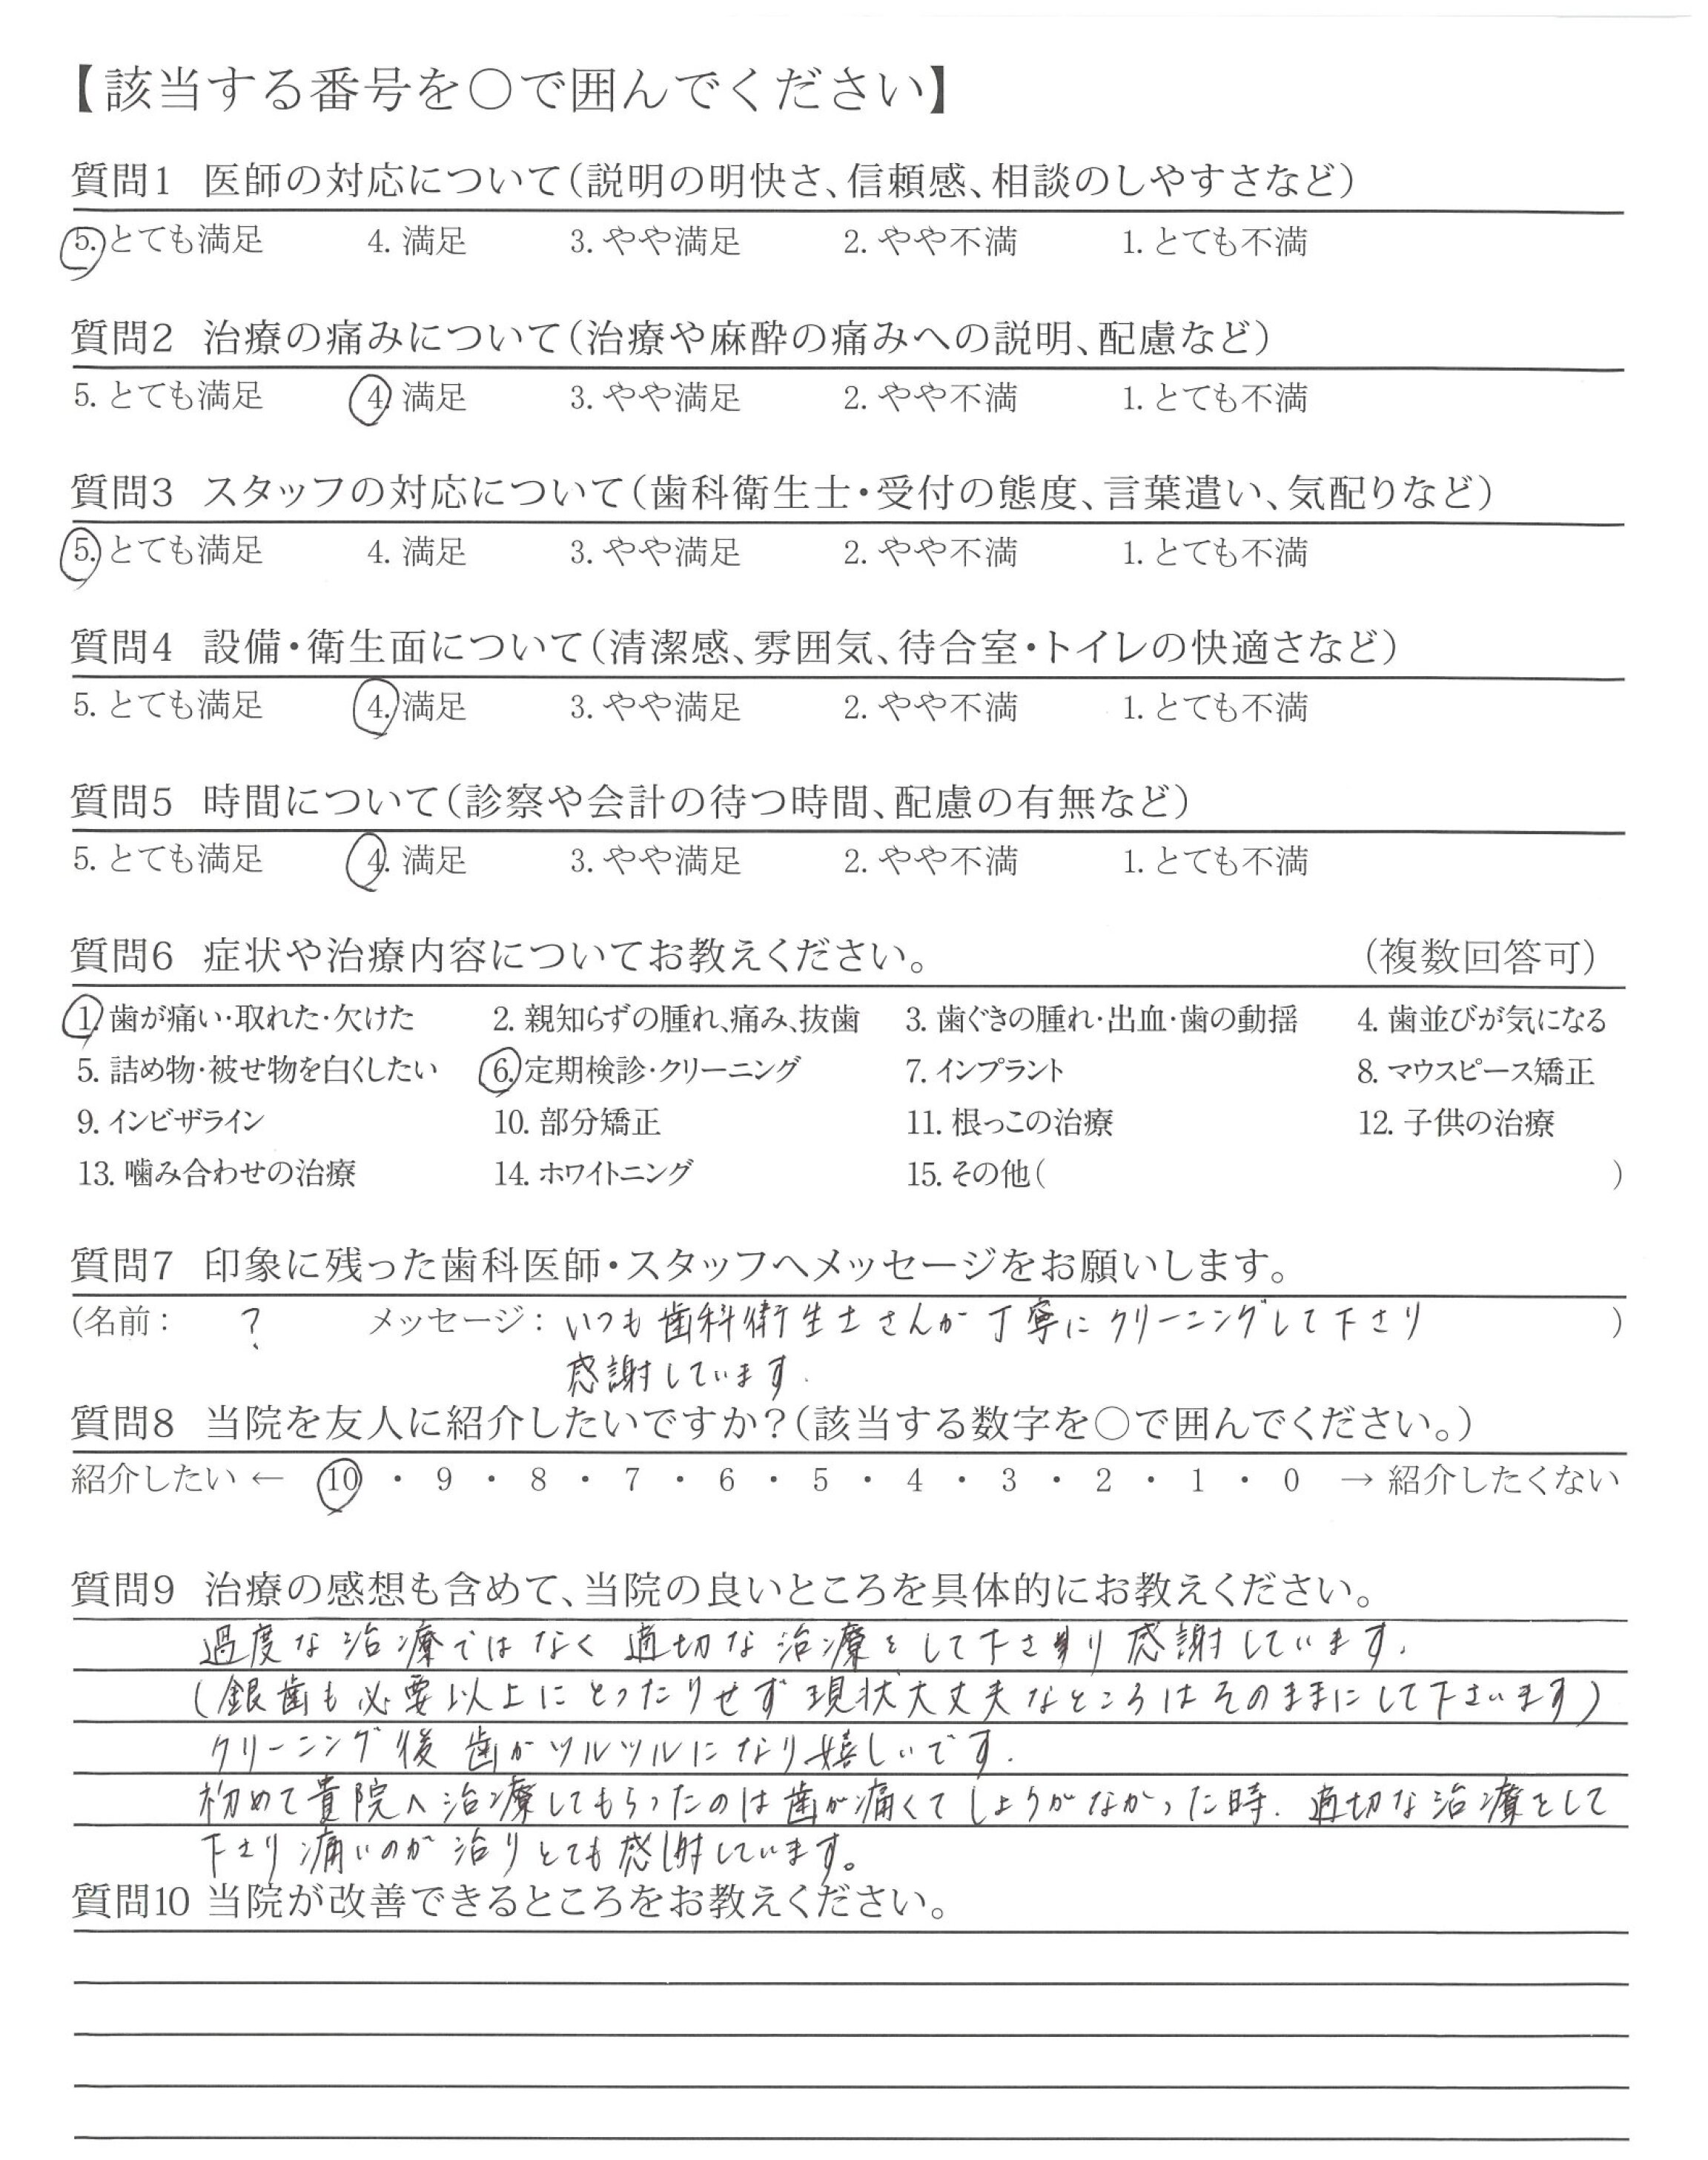 【該当する番号を○で囲んでください】
質問1 医師の対応について(説明の明快さ、信頼感、相談のしやすさなど)
5. とても満足 4. 満足 3. やや満足 2. やや不満 1. とても不満
質問2 治療の痛みについて(治療や麻酔の痛みへの説明、配慮など)
5. とても満足 4. 満足 3. やや満足 2. やや不満 1. とても不満
質問3 スタッフの対応について(歯科衛生士・受付の態度、言葉遣い、気配りなど)
5. とても満足 4. 満足 3. やや満足 2. やや不満 1. とても不満
質問4 設備・衛生面について(清潔感、雰囲気、待合室・トイレの快適さなど)
5. とても満足 4. 満足 3. やや満足 2. やや不満 1. とても不満
質問5 時間について(診察や会計の待つ時間、配慮の有無など)
5. とても満足 4. 満足 3. やや満足 2. やや不満 1. とても不満
質問6 症状や治療内容についてお教えください。 (複数回答可)
1. 歯が痛い・取れた・欠けた 2. 親知らずの腫れ、痛み、抜歯 3. 歯ぐきの腫れ・出血・歯の動揺 4. 歯並びが気になる
5. 詰め物・被せ物を白くしたい 6. 定期検診・クリーニング 7. インプラント 8. マウスピース矯正
9. インビザライン 10. 部分矯正 11. 根っこの治療 12. 子供の治療
13. 噛み合わせの治療 14. ホワイトニング 15. その他( )
質問7 印象に残った歯科医師・スタッフへメッセージをお願いします。
(名前: ? メッセージ: いつも歯科衛生士さんが丁寧にクリーニングして下さり )
感謝しています.
質問8 当院を友人に紹介したいですか?(該当する数字を○で囲んでください。)
紹介したい ← 10 ・ 9 ・ 8 ・ 7 ・ 6 ・ 5 ・ 4 ・ 3 ・ 2 ・ 1 ・ 0 → 紹介したくない
質問9 治療の感想も含めて、当院の良いところを具体的にお教えください。
過度な治療ではなく適切な治療をして下さり感謝しています.
(銀歯も必要以上にとったりせず現状大丈夫なところはそのままにして下さいます)
クリーニング後歯がツルツルになり嬉しいです.
初めて貴院へ治療してもらったのは歯が痛くてしょうがなかった時. 適切な治療をして
下さり痛いのが治りとても感謝しています。
質問10 当院が改善できるところをお教えください。